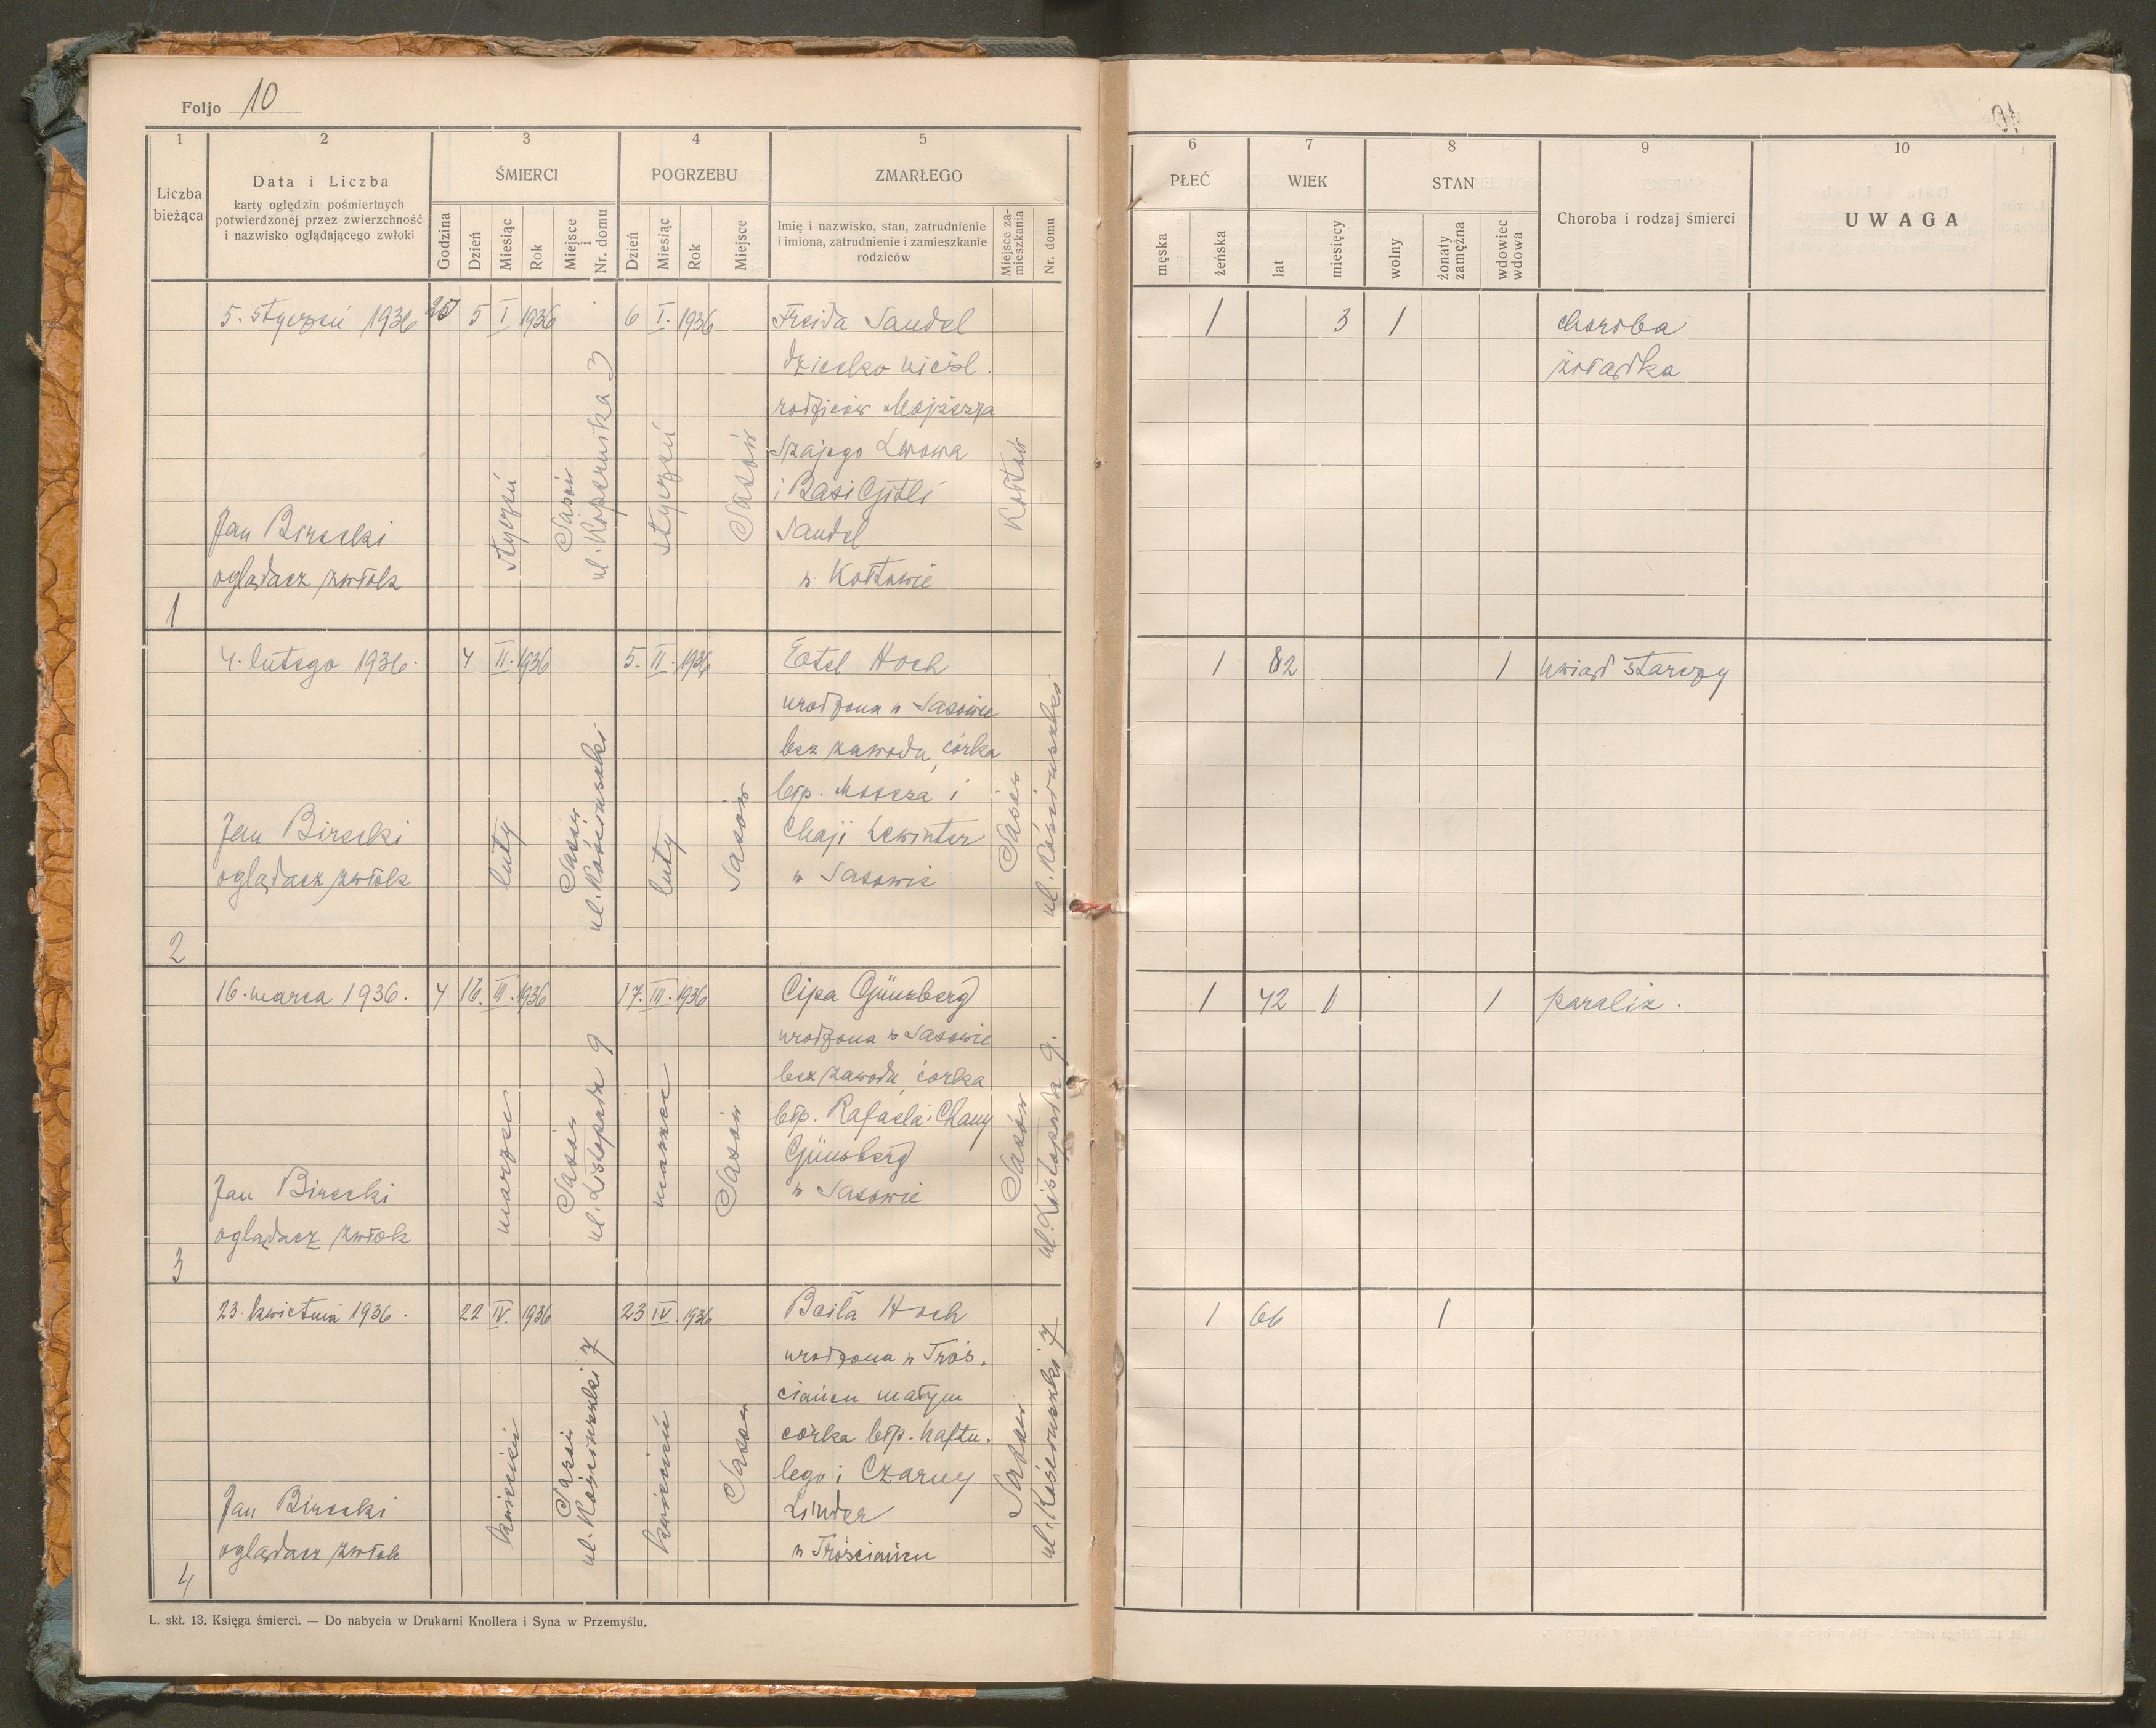 Foljo 10
1 2 3 4 5
Liczba bieżąca
Data i Liczba
karty oględzin pośmiertnych
potwierdzonej przez zwierzchność
i nazwisko oglądającego zwłoki
ŚMIERCI
Godzina Dzień Miesiąc Rok Miejsce i Nr. domu
POGRZEBU
Dzień Miesiąc Rok Miejsce
ZMARŁEGO
Imię i nazwisko, stan, zatrudnienie
i imiona, zatrudnienie i zamieszkanie
rodziców
Miejsce za-
mieszkania
Nr. domu
6 7 8 9 10
PŁEĆ
męska żeńska
WIEK
lat miesięcy
STAN
wolny
żonaty zamężna
wdowiec wdowa
Choroba i rodzaj śmierci
UWAGA
10
1
5. styczeń 1936
Jan Birecki
oglądacz zwłok
5 I 1936
styczeń
Sasów
ul. Kopernika 3
6 I. 1936
styczeń
Sasów
Freida Sandel
dziecko nieśl.
rodziców Mojżesza
Szajego Lwowa
i Basi Gitli
Sandel
w Kołtowie
Kołtów
1 3 1
choroba
żołądka
2
4. lutego 1936.
Jan Birecki
oglądacz zwłok
4 II. 1936
luty
Sasów
ul. Kościuszki
5. II. 1936
luty
Sasów
Eatel Hoch
urodzona w Sasowie
bez zawodu, córka
błp. Mosesa i
Chaji Lewinter
w Sasowie
Sasów
ul. Kościuszki
1 82 1
uwiąd starczy
3
16. marca 1936.
Jan Birecki
oglądacz zwłok
4 16. III. 1936
marzec
Sasów
ul. Listopada 9
17. III. 1936
marzec
Sasów
Cipa Günzberg
urodzona w Sasowie
bez zawodu, córka
błp. Rafaela i Chany
Günsberg
w Sasowie
Sasów
ul. Listopada 9.
1 42 1 1
paraliż.
4
23. kwietnia 1936.
Jan Birecki
oglądacz zwłok
22 IV. 1936
kwiecień
Sasów
ul. Kościuszki 7
23 IV. 1936
kwiecień
Sasów
Beila Hoch
urodzona w Troś.
ciańcu małym
córka błp. Naftu.
lego i Czarny
Linder
w Trościańcu
Sasów
ul. Kościuszki 7
1 66 1
L. skł. 13. Księga śmierci. — Do nabycia w Drukarni Knollera i Syna w Przemyślu.